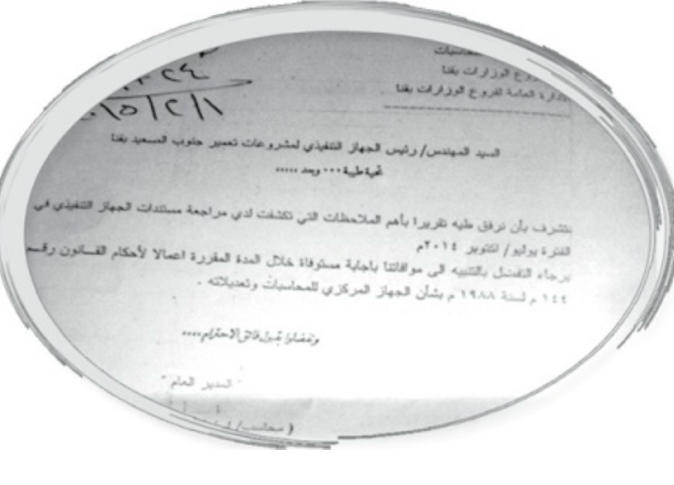 المحاسبات
فروع الوزارات بقنا
الإدارة العامة لفروع الوزارات بقنا
السيد المهندس/ رئيس الجهاز التنفيذي لمشروعات تعمير جنوب الصعيد بقنا
تحية طيبة ... وبعد .....
نتشرف بأن نرفق طيه تقريرا بأهم الملاحظات التي تكشفت لدي مراجعة مستندات الجهاز التنفيذي في
الفترة يوليو/ اكتوبر ٢٠١٤م
برجاء التفضل بالتنبيه الى موافاتنا باجابة مستوفاة خلال المدة المقررة اعمالا لأحكام القانون رقم
١٤٤ م لسنة ١٩٨٨ م بشأن الجهاز المركزي للمحاسبات وتعديلاته .
وتفضلوا بقبول فائق الاحترام،،،،
" المدير العام "
( محاسب/